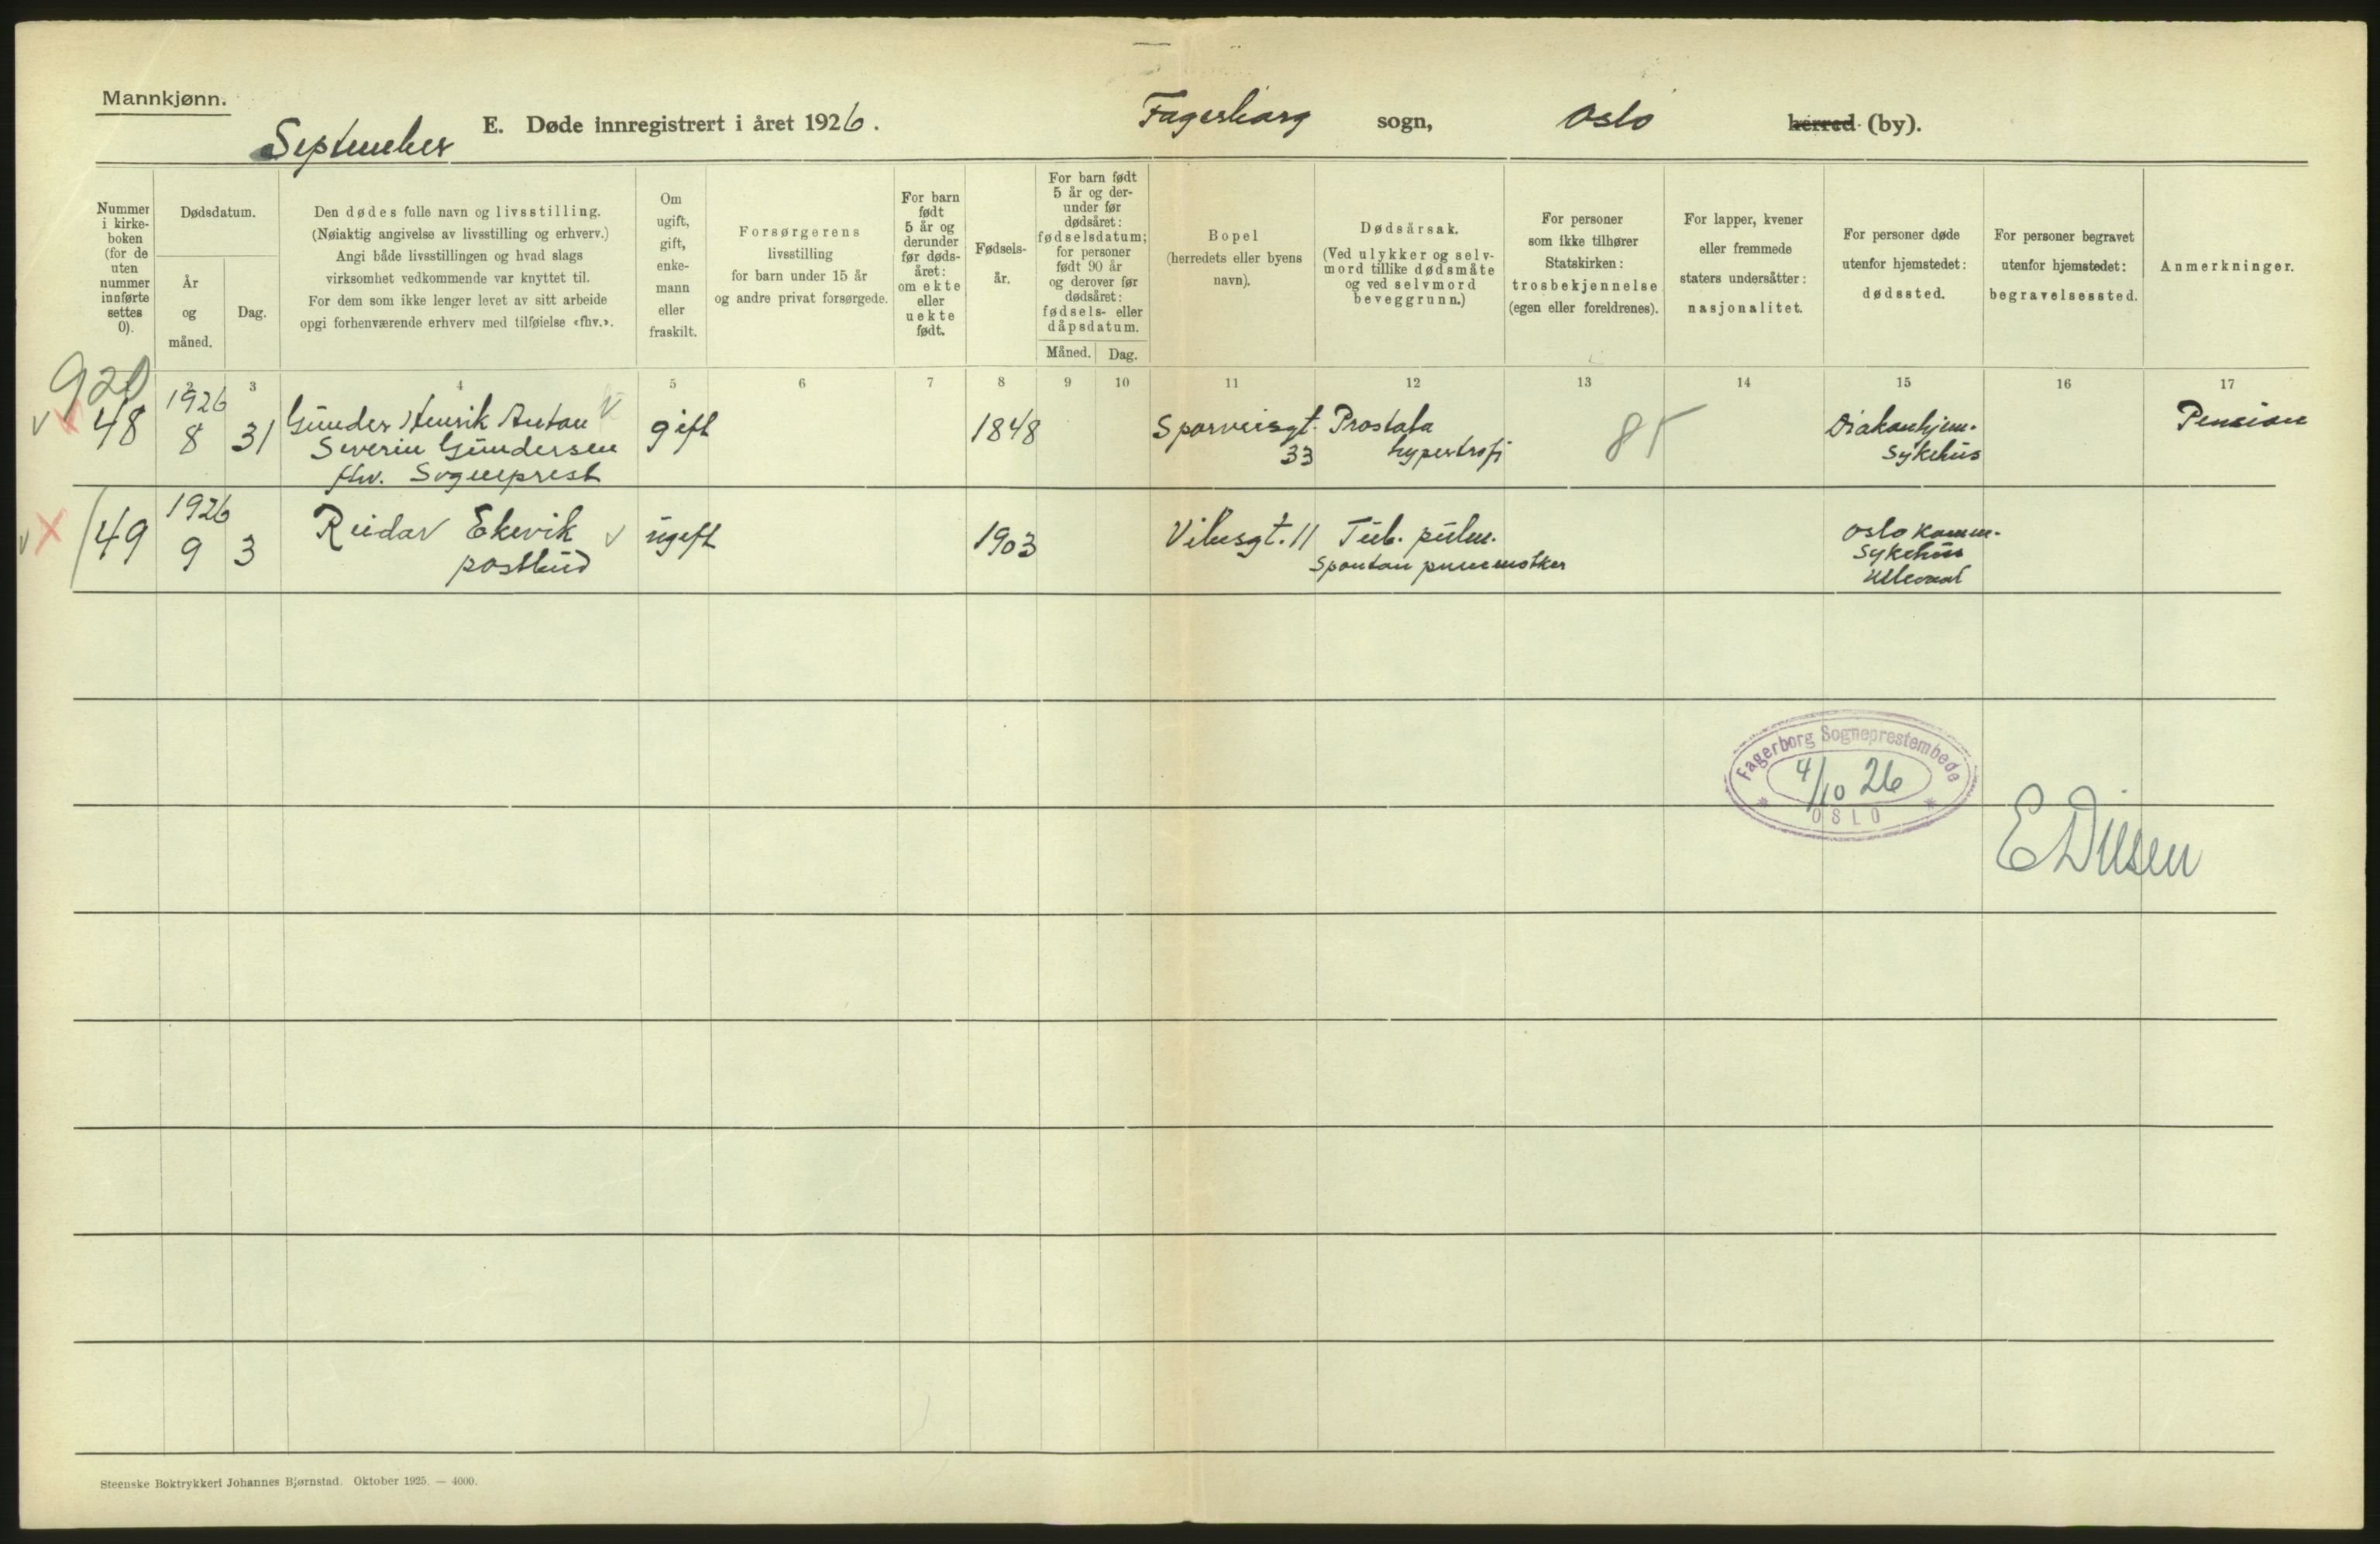 Mannkjønn.
September
E. Døde innregistrert i året 1926.
Fagerborg sogn, Oslo herred (by).
Nummer i kirke-boken (for de uten nummer innførte settes 0).
Dødsdatum.
År og måned.
Dag.
Den dødes fulle navn og livsstilling.
(Nøiaktig angivelse av livsstilling og erhverv.)
Angi både livsstillingen og hvad slags
virksomhet vedkommende var knyttet til.
For dem som ikke lenger levet av sitt arbeide
opgi forhenværende erhverv med tilføielse «fhv.».
Om ugift, gift, enke-mann eller fraskilt.
Forsørgerens
livsstilling
for barn under 15 år
og andre privat forsørgede.
For barn født 5 år og derunder før døds-året: om ekte eller uekte født.
Fødsels-år.
For barn født 5 år og der-under før dødsåret: fødselsdatum; for personer født 90 år og derover før dødsåret: fødsels- eller dåpsdatum.
Måned. Dag.
Bopel
(herredets eller byens
navn).
Dødsårsak.
(Ved ulykker og selv-
mord tillike dødsmåte
og ved selvmord
beveggrunn.)
For personer
som ikke tilhører
Statskirken:
trosbekjennelse
(egen eller foreldrenes).
For lapper, kvener
eller fremmede
staters undersåtter:
nasjonalitet.
For personer døde
utenfor hjemstedet:
dødssted.
For personer begravet
utenfor hjemstedet:
begravelsessted.
Anmerkninger.
2 3 4 5 6 7 8 9 10 11 12 13 14 15 16 17
920
48 1926 8 31
Gunder Henrik Anton
Severin Gundersen
fhv. Sogneprest
gift
1848
Sporveisgt. 33
Prostata
hypertrofi
85
Diakonhjem.
Sykehus
Pension
49 1926 9 3
Reidar Ekevik
postbud
ugift
1903
Vibesgt. 11
Tub. pulm.
Spontan pneumotker
Oslo Komm.
Sykehus
Ullevaal
Fagerborg Sogneprestembede
4/10 26
OSLO
Steenske Boktrykkeri Johannes Bjørnstad. Oktober 1925. — 4000.